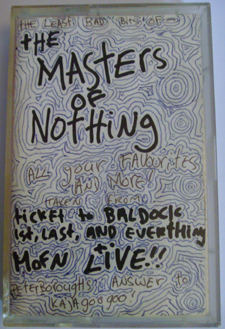 THE LEAST BAD BITS OF
THE
MASTERS
OF
NOTHING
ALL your FAVOURITES
AND MORE!
TAKEN FROM
TICKET to BALDOCK
1st, LAST, AND EVERYTHING
+
MOFN LIVE!!
PETERBOROUGH'S ANSWER to
KAJAgoogoo!